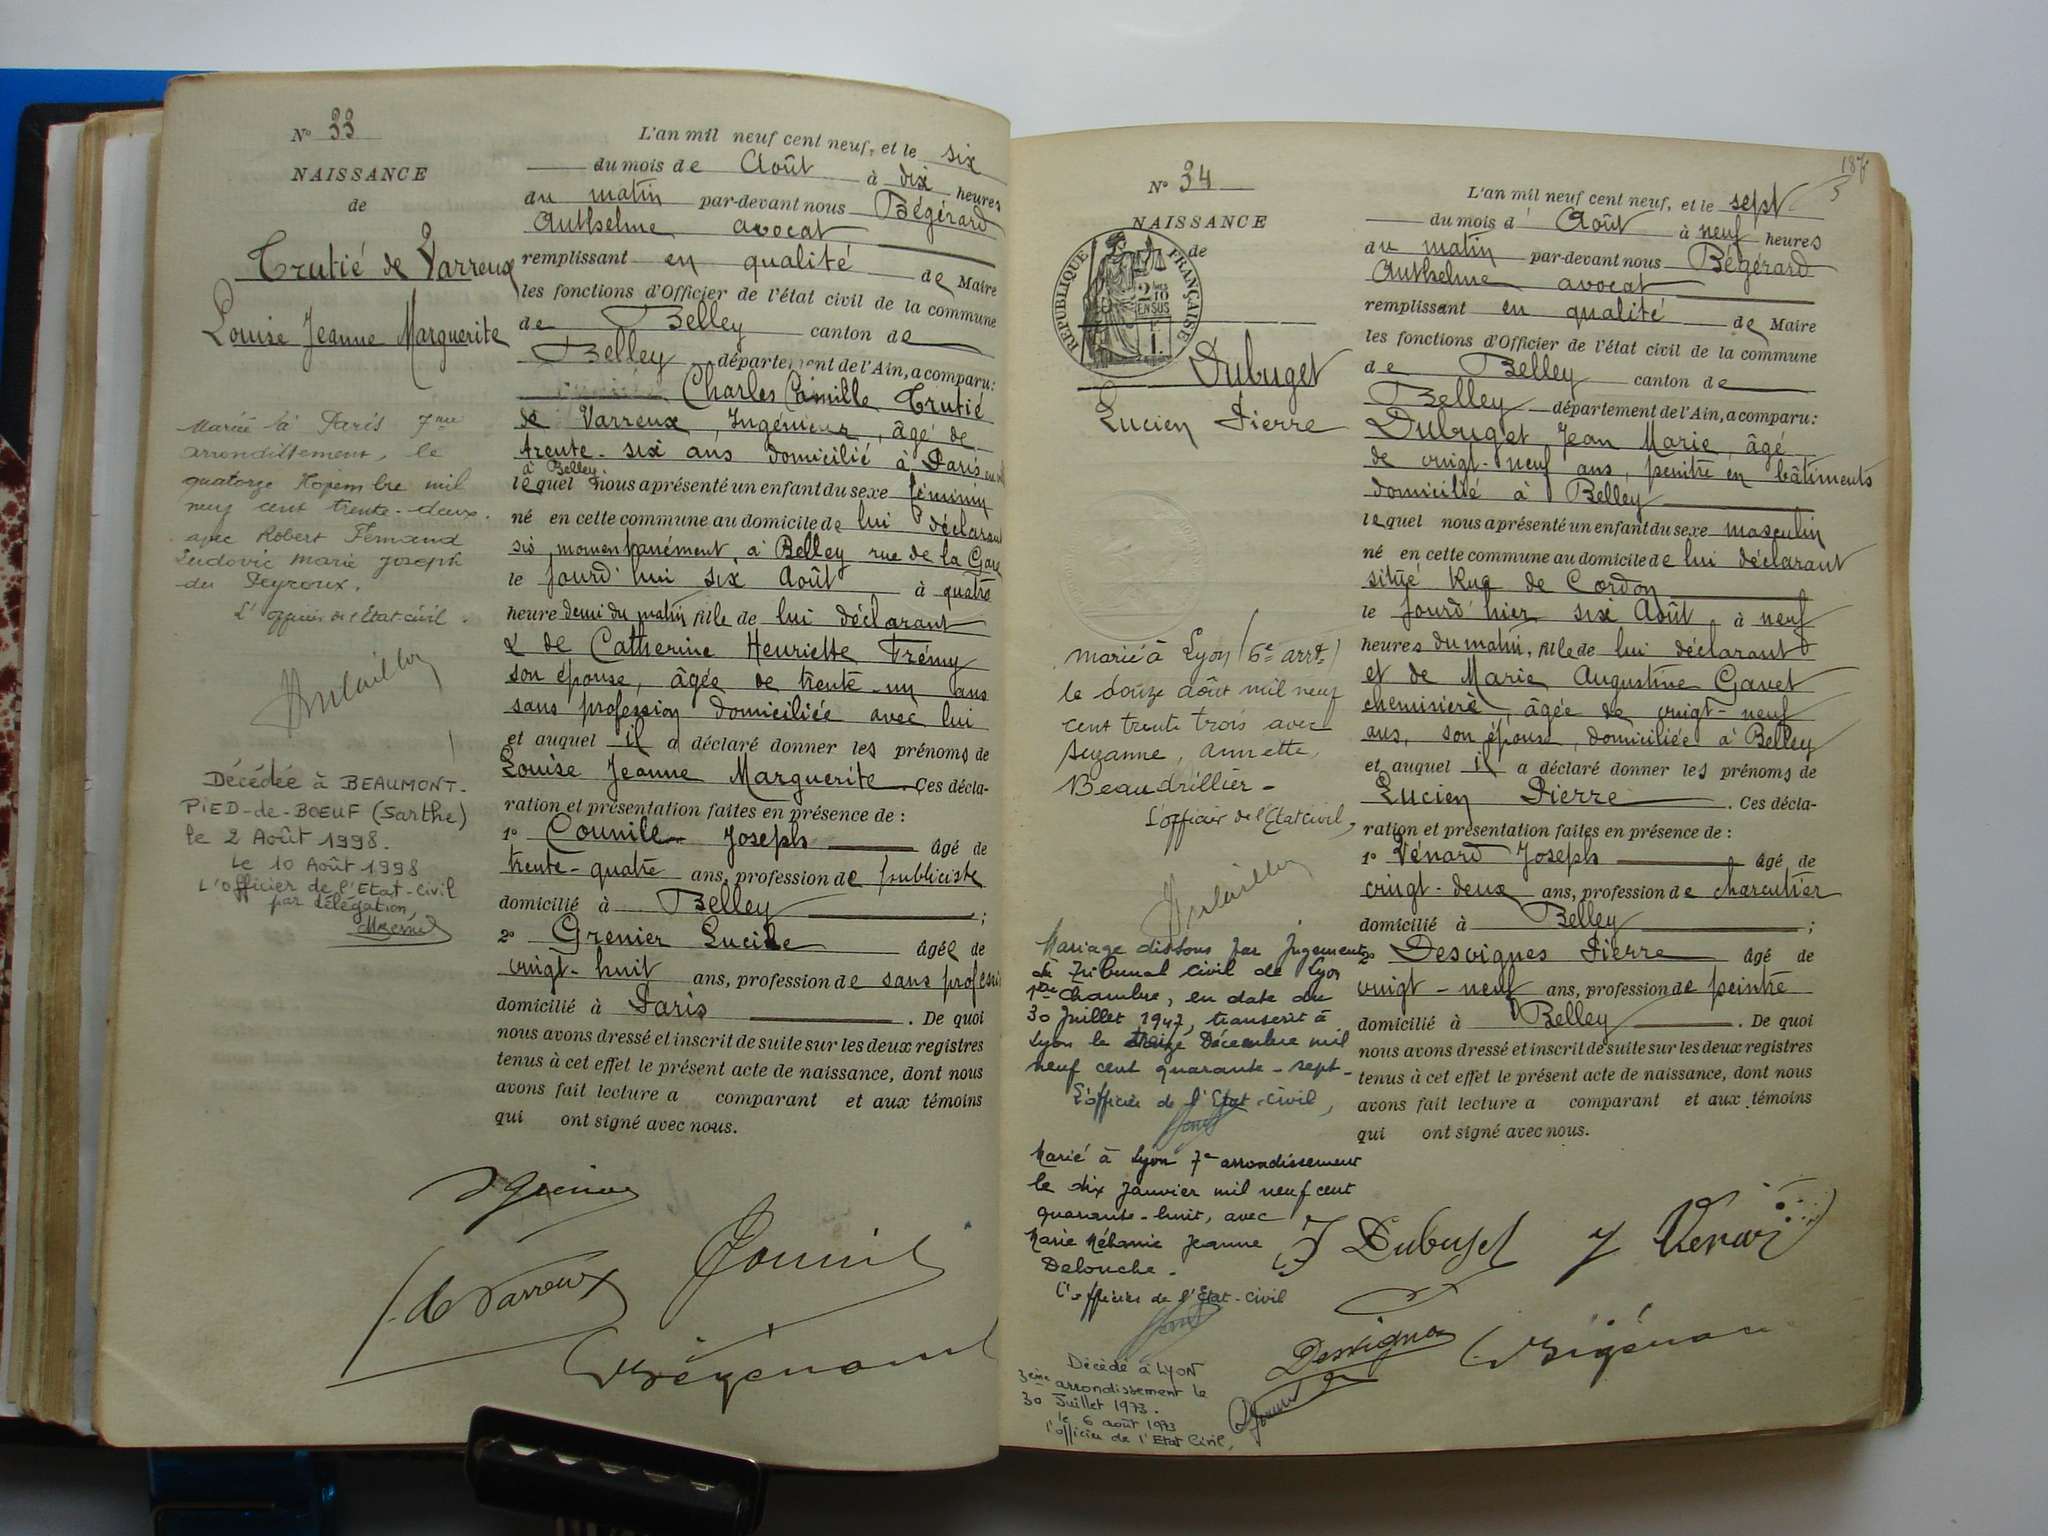 N° 33
NAISSANCE
de
Trutié de Varreux
Louise Jeanne Marguerite
Mariée à Paris 7me
arrondissement, le
quatorze Novembre mil
neuf cent trente-deux.
avec Robert Fernand
Ludovic Marie Joseph
du Peyroux.
L'officier de l'Etat civil.
Décédée à BEAUMONT-
PIED-de-BOEUF (Sarthe)
le 2 Août 1998.
Le 10 Août 1998
L'officier de l'Etat-Civil
par délégation,
L'an mil neuf cent neuf, et le six
du mois de Août à dix heures
du matin par-devant nous Bégérard
Anthelme avocat
remplissant en qualité de Maire
les fonctions d'Officier de l'état civil de la commune
de Belley canton de
Belley département de l'Ain, a comparu:
Charles Camille Trutié
de Varreux, Ingénieur, âgé de
trente-six ans domicilié à Paris
à Belley.
lequel nous a présenté un enfant du sexe féminin
né en cette commune au domicile de lui déclarant
sis momentanément à Belley rue de la Gare
le jourd'hui six Août à quatre
heure demi du matin, fille de lui déclarant
& de Catherine Henriette Frémy
son épouse, âgée de trente-un ans
sans profession domiciliée avec lui
et auquel il a déclaré donner les prénoms de
Louise Jeanne Marguerite. Ces décla-
ration et présentation faites en présence de :
1° Counile Joseph âgé de
trente-quatre ans, profession de publiciste
domicilié à Belley ;
2° Grenier Lucile âgée de
vingt-huit ans, profession de sans profession
domicilié à Paris . De quoi
nous avons dressé et inscrit de suite sur les deux registres
tenus à cet effet le présent acte de naissance, dont nous
avons fait lecture a comparant et aux témoins
qui ont signé avec nous.
de Varreux
187
N° 34
NAISSANCE
de
RÉPUBLIQUE FRANÇAISE
2/10
EN SUS
Dubuget
Lucien Pierre
marié à Lyon (6e arrt)
le douze août mil neuf
cent trente trois avec
Suzanne, Annette,
Beaudrillier -
L'officier de l'Etat civil,
Mariage dissous par jugement
du Tribunal Civil de Lyon
1ère Chambre, en date du
30 Juillet 1947, transcrit à
Lyon le treize Décembre mil
neuf cent quarante-sept-
L'officier de l'Etat-Civil,
Marié à Lyon 7e arrondissement
le dix Janvier mil neuf cent
quarante-huit, avec
Marie Mélanie Jeanne
Delouche -
L'officier de l'Etat-Civil
Décédé à LYON
3ème arrondissement le
30 Juillet 1973.
le 6 août 1973
l'officier de l'Etat Civil,
L'an mil neuf cent neuf, et le sept
du mois d' Août à neuf heures
du matin par-devant nous Bégérard
Anthelme avocat
remplissant en qualité de Maire
les fonctions d'Officier de l'état civil de la commune
de Belley canton de
Belley département de l'Ain, a comparu:
Dubuget, Jean Marie, âgé
de vingt-neuf ans, peintre en bâtiments
domicilié à Belley
lequel nous a présenté un enfant du sexe masculin
né en cette commune au domicile de lui déclarant
situé Rue de Cordon
le jourd'hier six Août à neuf
heures du matin, fille de lui déclarant
et de Marie Augustine Gavet
chemisière, âgée de vingt-neuf
ans, son épouse, domiciliée à Belley
et auquel il a déclaré donner les prénoms de
Lucien Pierre . Ces décla-
ration et présentation faites en présence de :
1° Vénard Joseph âgé de
vingt-deux ans, profession de charcutier
domicilié à Belley ;
2° Desvignes Pierre âgé de
vingt-neuf ans, profession de peintre
domicilié à Belley . De quoi
nous avons dressé et inscrit de suite sur les deux registres
tenus à cet effet le présent acte de naissance, dont nous
avons fait lecture a comparant et aux témoins
qui ont signé avec nous.
J Dubuget J Vénard
Desvignes